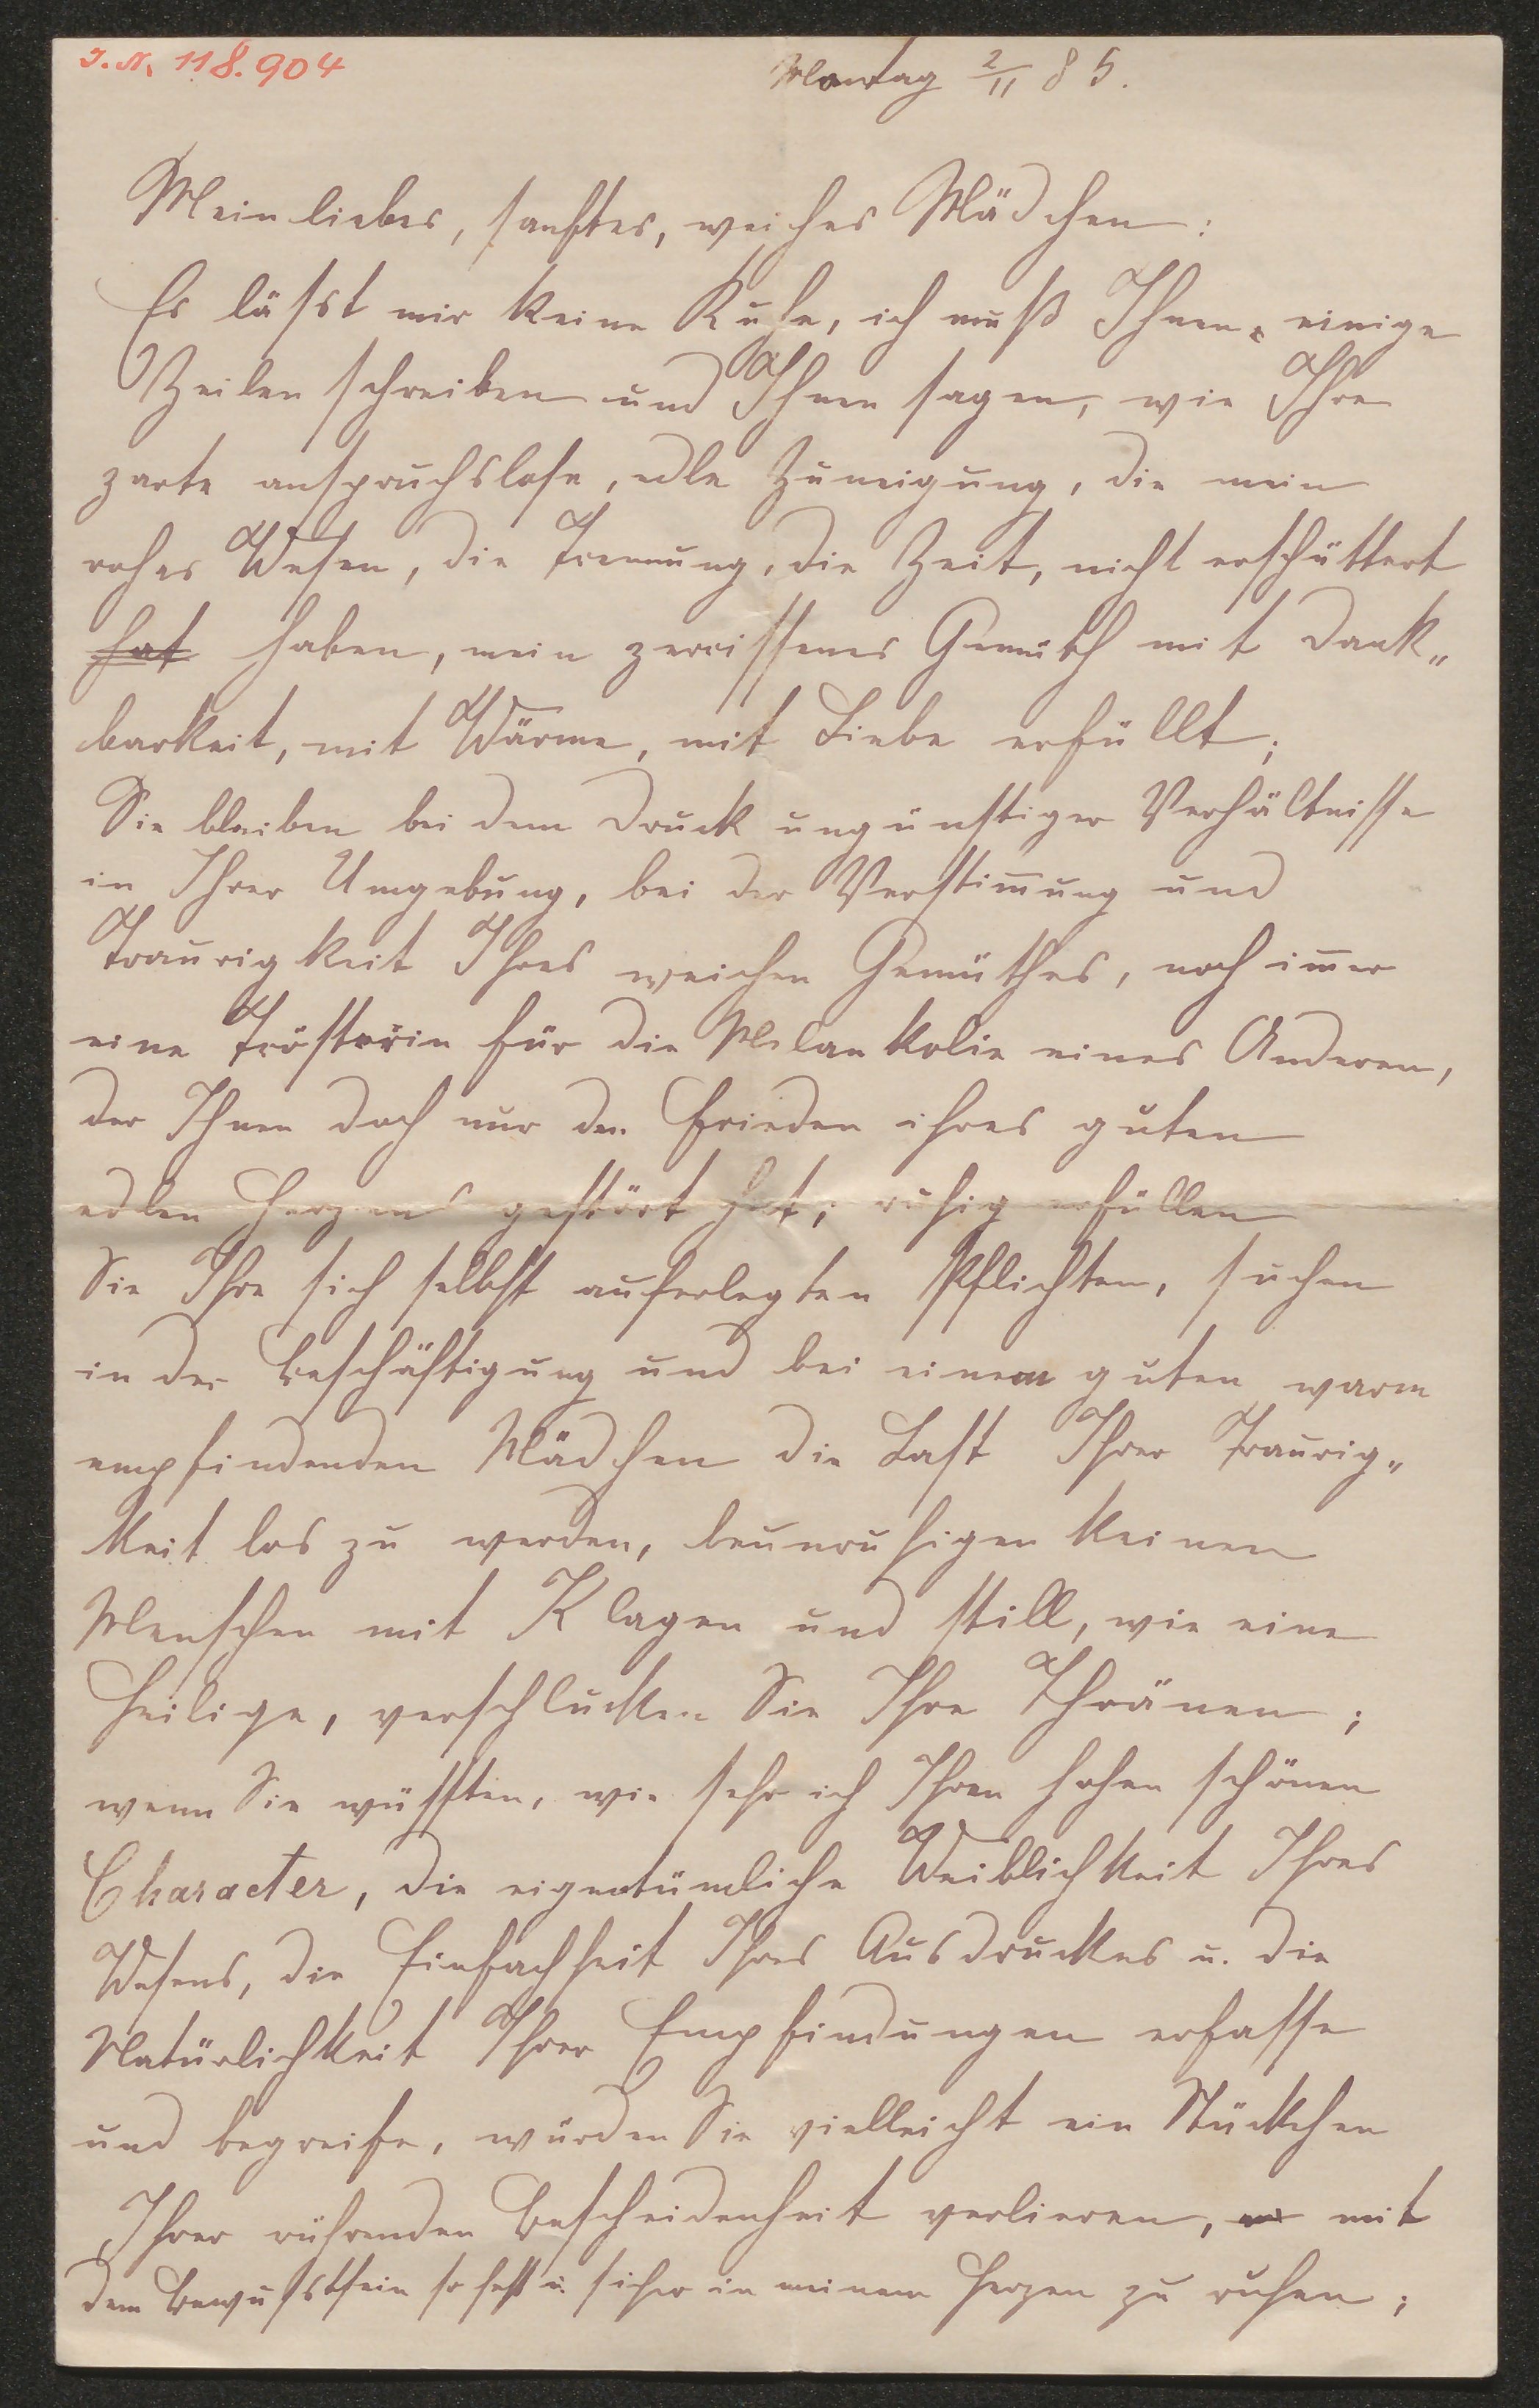 J. N. 118.904
Montag 2/11 85.
Mein liebes, sanftes, weiches Mädchen:
Es läßst mir keine Ruhe, ich muß Ihnen einige
Zeilen schreiben und Ihnen sagen, wie Ihre
zarte anspruchslose, edle Zuneigung, die mein
rohes Wesen, die Trennung, die Zeit, nicht erschüttert
hat haben, mein zerrissenes Gemüth mit Dank„
barkeit, mit Wärme, mit Liebe erfüllt;
Sie bleiben bei dem Druck ungünstiger Verhältnisse
in Ihrer Umgebung, bei der Verstim̅ung und
Traurigkeit Ihres weichen Gemüthes, noch im̅er
eine Trösterin für die Melankolie eines Anderen,
der Ihnen doch nur den Frieden ihres guten
edlen Herzens gestört hat; ruhig erfüllen
Sie Ihre sich selbst auferlegten Pflichten, suchen
in der Beschäftigung und bei einem guten warm
empfindenden Mädchen die Last Ihrer Traurig„
keit los zu werden, beunruhigen keinen
Menschen mit Klagen und still, wie eine
Heilige, verschlucken Sie Ihre Thränen;
wenn Sie wüssten, wie sehr ich Ihren hohen schönen
Character, die eigentümliche Weiblichkeit Ihres
Wesens, die Einfachheit Ihres Ausdruckes u. die
Natürlichkeit Ihrer Empfindungen erfasse
und begreife, würden Sie vielleicht ein Stückchen
Ihrer rührenden Bescheidenheit verlieren, mit
dem Bewußstsein so fest u. sicher in meinem Herzen zu ruhen;